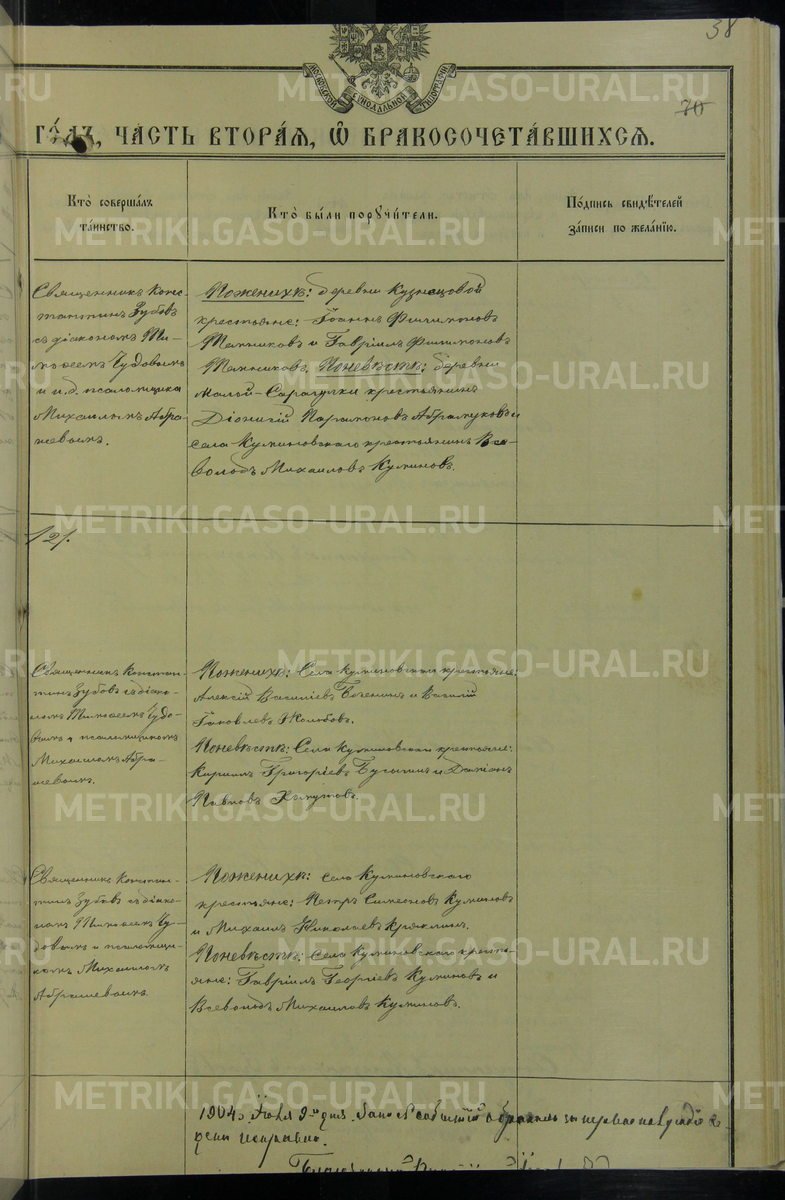 38
МОСКОВСКОЙ СѴНОДАЛЬНОЙ ТИПОГРАФІИ
70
ГО́ДЪ, ЧАСТЬ ВТОРА́Я, Ѡ БРАКОСОЧЕТА́ВШИХСЯ.
Кто̀ соверша́лъ
та́инство.
Кто̀ бы́ли пор​ꙋчи́тели.
По́дпись свидѣ́телей
за́писи по жела́нію.
Священникъ Конс-
тантинъ Зубовъ
съ діакономъ Ти-
моѳеемъ Чудовымъ
и и.д. псаломщика
Михаиломъ Абра-
шевымъ.
Поженихѣ: деревни Кузнецовой
крестьяне: Іоаннъ Филимоновъ
и Гавріилъ Филимоновъ
Поневѣстѣ: деревни
Малой-Сарагулки крестьянинъ
Діонисій Парамоновъ и
села Куминовскаго крестьянинъ Все-
володъ Михаиловъ Куминовъ.
121.
Священникъ Констан-
тинъ Зубовъ съ діако-
номъ Тимоѳеемъ Чудо-
вымъ и псаломщикомъ
Михаиломъ Абра-
шевымъ.
Поженихѣ: Села Куминовскаго крестьяне:
Алексій Василіевъ и Василій
Іаковлевъ
Поневѣстѣ: Села Куминовскаго крестьяне:
Кириллъ Григоріевъ Бусыгинъ и
Павловъ Хомутовъ.
Священникъ Констан-
тинъ Зубовъ съ діако-
номъ Тимоѳеемъ Чу-
довымъ и псаломщи-
комъ Михаиломъ
Абрашевымъ.
Поженихѣ: села Куминовскаго
крестьяне: Петръ Симеоновъ Куминовъ
и Михаилъ Николаевъ Кряклинъ.
Поневѣстѣ: Села Куминовскаго кресть-
яне: Гавріилъ Георгіевъ Куминовъ и
Всеволодъ Михаиловъ Куминовъ.
1904 г. Іюля 9го дня. Запись событій о бракахъ за первое полугодіе
исправно.
METRIKI.GASO-URAL.RU